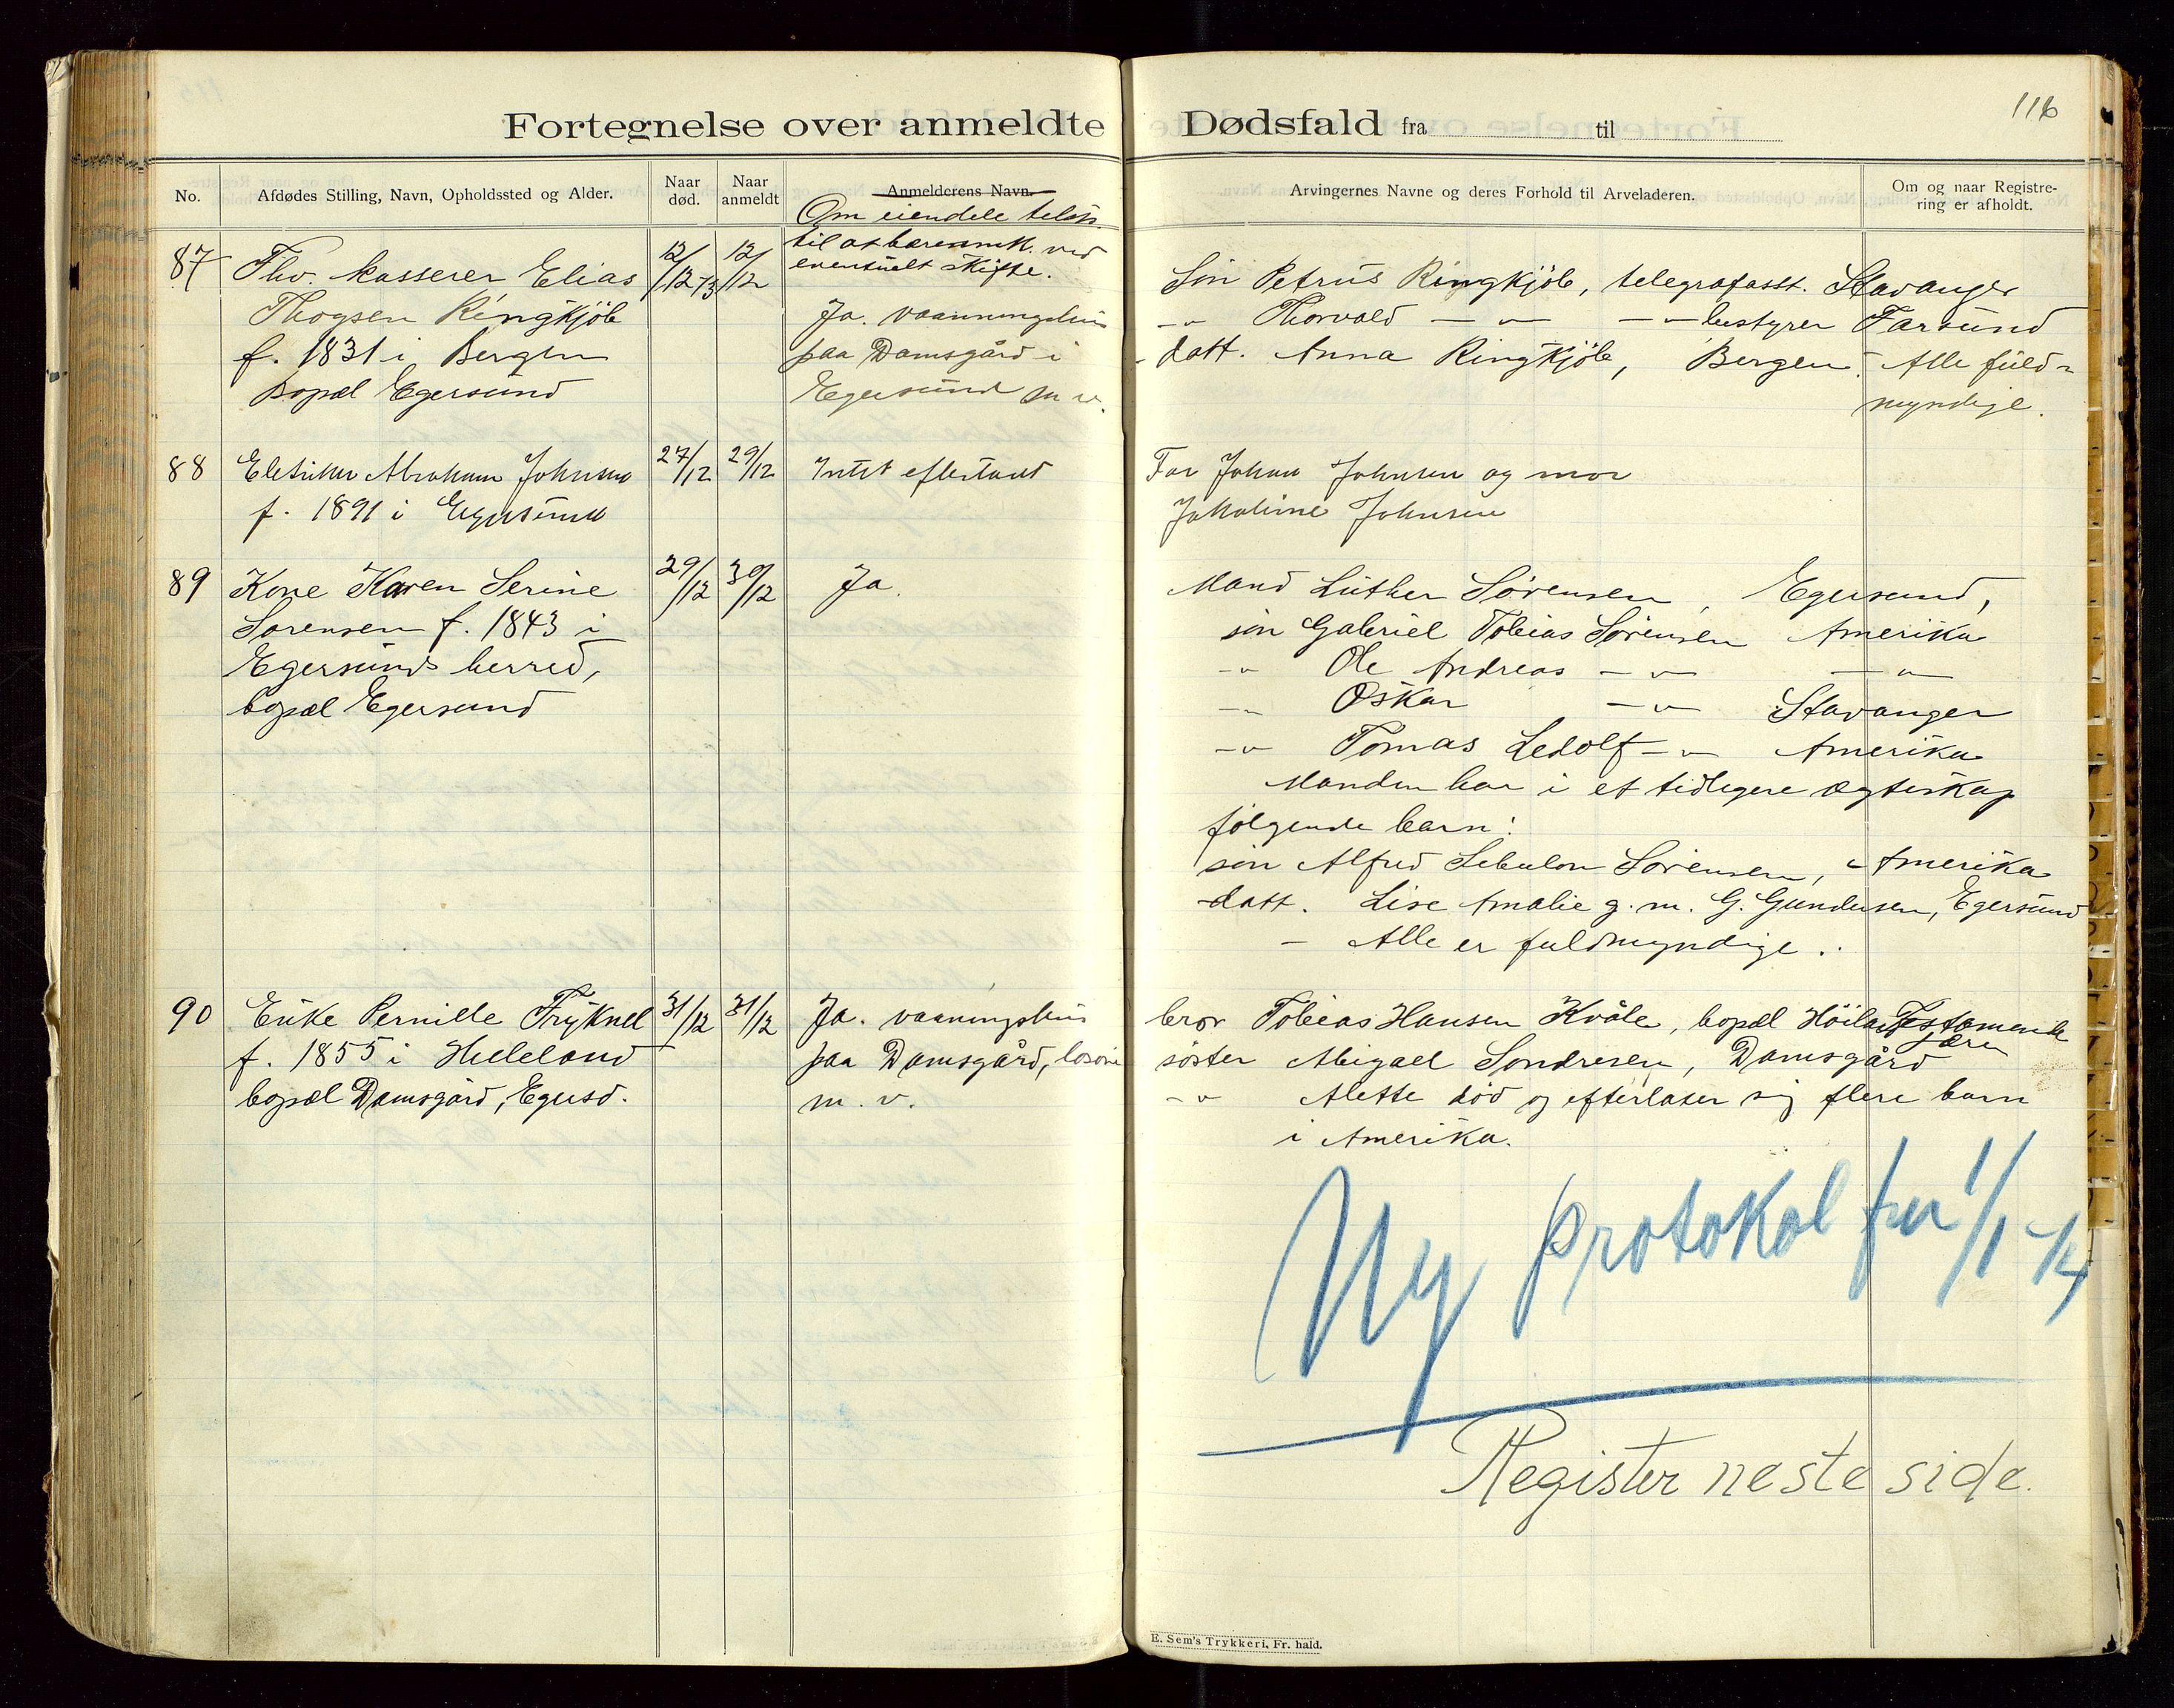 116
Fortegnelse over anmeldte Dødsfald fra til
No.
Afdødes Stilling, Navn, Opholdssted og Alder.
Naar død.
Naar anmeldt
Anmelderens Navn.
Om eiendele
til at ved
eventuelt skifte.
Arvingernes Navne og deres Forhold til Arveladeren.
Om og naar Registre-
ring er afholdt.
87 Fhv. kasserer Elias 12/12 13 12/12
Thogsen Ringkjöb
f. 1831 i Bergen
Bopæl Egersund
Ja. vaaningshus
paa Damsgård i
Egersund m v.
Sön Petrus Ringkjöb, telegrafasst. Stavanger
-"- Thorvald -"- -"- bestyrer Farsund
datt. Anna Ringkjöb, Bergen. Alle fuld-
myndige.
88 Abraham Johnsen 27/12 29/12 Intet efterladt
f. 1891 i Egersund
Far Johan Johnsen og mor
Johnsen
89 Kone Karen Serine 29/12 30/12 Ja.
Sørensen f. 1843 i
Egersunds herred,
bopæl Egersund
Mand Luther Sörensen, Egersund,
sön Gabriel Tobias Sörensen Amerika
-"- Ole Andreas -"- -"-
-"- Oskar -"- Stavanger
-"- Tomas Ledolf -"- Amerika
Manden har i et tidligere ægteskap
følgende barn:
sön Alfred Sebulon Sörensen, Amerika
datt. Lise Amalie g. m. G. Gundersen, Egersund
- Alle er fuldmyndige.
90 Enke Pernille Fryknel 31/12 31/12
f. 1855 i Heleland
bopæl Damsgård, Egersd.
Ja. vaaningshus
paa Damsgård, lösöre
m. v.
bror Tobias Hansen Kvåle, bopæl Testamente
söster Abigael Sondresen, Damsgård
-"- Alette död og efterlater sig flere barn
i Amerika.
Ny protokol fra 1/1 - 14
Register neste side.
E. Sem's Trykkeri, Fr. hald.